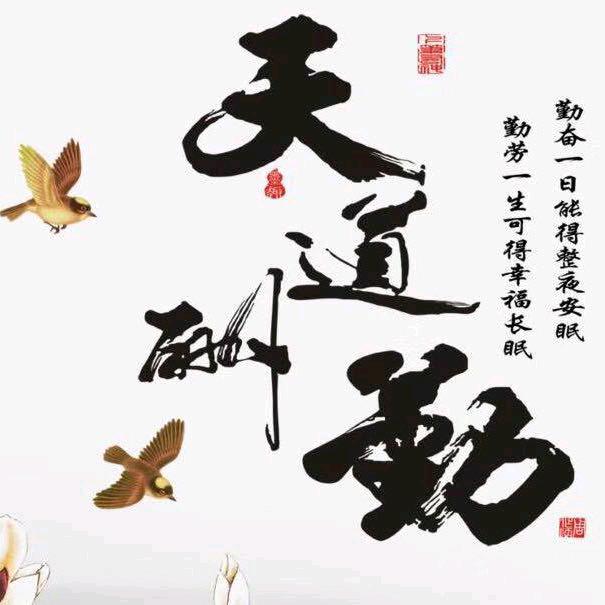 天道酬勤
勤奋一日能得整夜安眠
勤劳一生可得幸福长眠